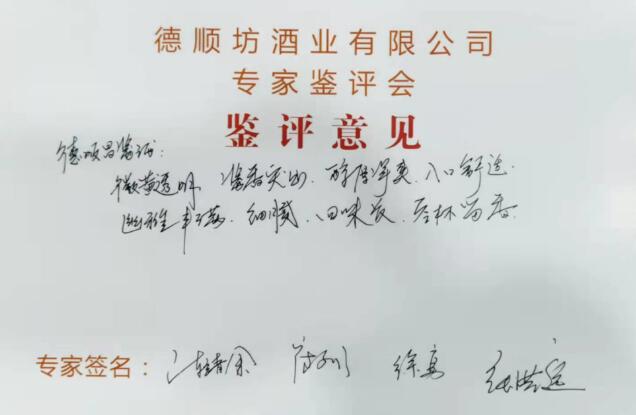 德顺坊酒业有限公司
专家鉴评会
鉴评意见
德顺昌酱酒：
微黄透明、酱香突出、醇厚净爽、入口舒适、
幽雅丰满、细腻、回味长、空杯留香。
专家签名：徐